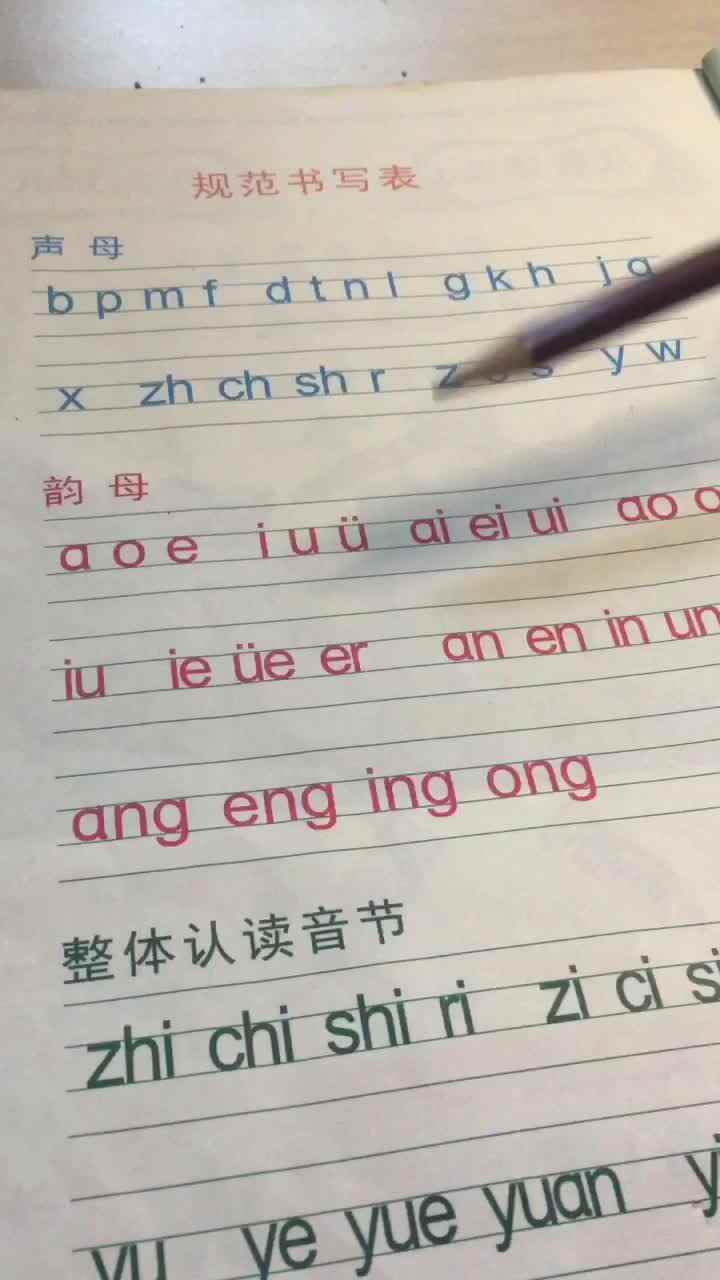 规范书写表
声母
b p m f d t n l g k h j q
x zh ch sh r z s y w
韵母
a o e i u ü ai ei ui ao
iu ie üe er an en in un
ang eng ing ong
整体认读音节
zhi chi shi ri zi ci si
yu ye yue yuan